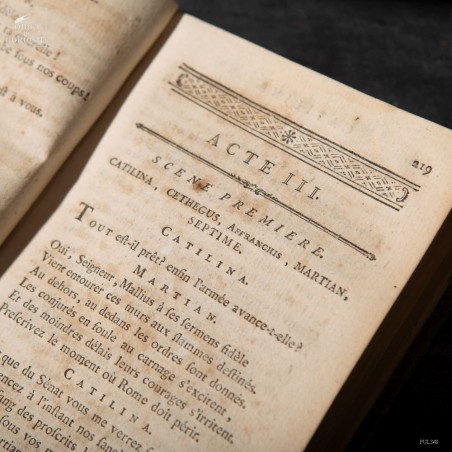 querelle!
sous nos coups!
à vous.
219
ACTE III.
SCENE PREMIERE.
CATILINA, CETHEGUS, AFFRANCHIS, MARTIAN,
SEPTIME.
CATILINA.
Tout est-il prêt? enfin l'armée avance-t-elle?
MARTIAN.
Oui, Seigneur, Mallius à ses sermens fidèle
Vient entourer ces murs aux flammes destinés.
Au dehors, au dedans les ordres sont donnés.
Les conjurés en foule au carnage s'excitent,
Et des moindres délais leurs courages s'irritent.
Prescrivez le moment où Rome doit périr.
CATILINA.
que du Sénat vous me verrez
à l'instant nos
des proscrits
sous vos
FUL346